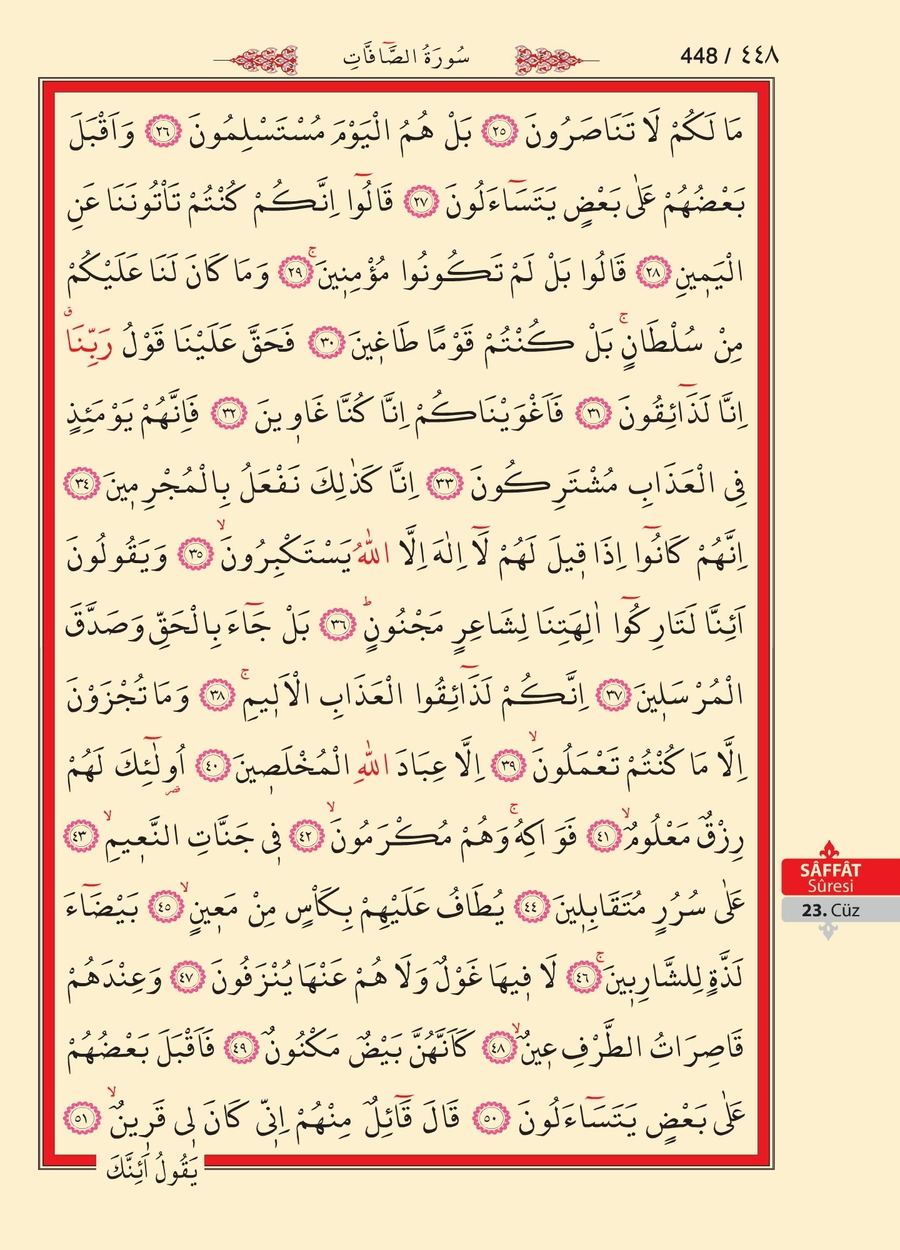 448 / ٤٤٨
سُورَةُ الصَّٓافَّاتِ
مَا لَكُمْ لَا تَنَاصَرُونَ ﴿٢٥﴾ بَلْ هُمُ الْيَوْمَ مُسْتَسْلِمُونَ ﴿٢٦﴾ وَاَقْبَلَ
بَعْضُهُمْ عَلٰى بَعْضٍ يَتَسَٓاءَلُونَ ﴿٢٧﴾ قَالُٓوا اِنَّكُمْ كُنْتُمْ تَأْتُونَنَا عَنِ
الْيَمٖينِ ﴿٢٨﴾ قَالُوا بَلْ لَمْ تَكُونُوا مُؤْمِنٖينَۚ ﴿٢٩﴾ وَمَا كَانَ لَنَا عَلَيْكُمْ
مِنْ سُلْطَانٍۚ بَلْ كُنْتُمْ قَوْمًا طَاغٖينَ ﴿٣٠﴾ فَحَقَّ عَلَيْنَا قَوْلُ رَبِّنَاۗ
اِنَّا لَذَٓائِقُونَ ﴿٣١﴾ فَاَغْوَيْنَاكُمْ اِنَّا كُنَّا غَاوٖينَ ﴿٣٢﴾ فَاِنَّهُمْ يَوْمَئِذٍ
فِى الْعَذَابِ مُشْتَرِكُونَ ﴿٣٣﴾ اِنَّا كَذٰلِكَ نَفْعَلُ بِالْمُجْرِمٖينَ ﴿٣٤﴾
اِنَّهُمْ كَانُٓوا اِذَا قٖيلَ لَهُمْ لَٓا اِلٰهَ اِلَّا اللّٰهُ يَسْتَكْبِرُونَۙ ﴿٣٥﴾ وَيَقُولُونَ
اَئِنَّا لَتَارِكُٓوا اٰلِهَتِنَا لِشَاعِرٍ مَجْنُونٍؕ ﴿٣٦﴾ بَلْ جَٓاءَ بِالْحَقِّ وَصَدَّقَ
الْمُرْسَلٖينَ ﴿٣٧﴾ اِنَّكُمْ لَذَٓائِقُوا الْعَذَابِ الْاَلٖيمِۚ ﴿٣٨﴾ وَمَا تُجْزَوْنَ
اِلَّا مَا كُنْتُمْ تَعْمَلُونَۙ ﴿٣٩﴾ اِلَّا عِبَادَ اللّٰهِ الْمُخْلَصٖينَ ﴿٤٠﴾ اُو۬لٰٓئِكَ لَهُمْ
رِزْقٌ مَعْلُومٌۙ ﴿٤١﴾ فَوَاكِهُۚ وَهُمْ مُكْرَمُونَۙ ﴿٤٢﴾ فٖى جَنَّاتِ النَّعٖيمِۙ ﴿٤٣﴾
عَلٰى سُرُرٍ مُتَقَابِلٖينَ ﴿٤٤﴾ يُطَافُ عَلَيْهِمْ بِكَأْسٍ مِنْ مَعٖينٍۙ ﴿٤٥﴾ بَيْضَٓاءَ
لَذَّةٍ لِلشَّارِبٖينَۚ ﴿٤٦﴾ لَا فٖيهَا غَوْلٌ وَلَا هُمْ عَنْهَا يُنْزَفُونَ ﴿٤٧﴾ وَعِنْدَهُمْ
قَاصِرَاتُ الطَّرْفِ عٖينٌۙ ﴿٤٨﴾ كَاَنَّهُنَّ بَيْضٌ مَكْنُونٌ ﴿٤٩﴾ فَاَقْبَلَ بَعْضُهُمْ
عَلٰى بَعْضٍ يَتَسَٓاءَلُونَ ﴿٥٠﴾ قَالَ قَٓائِلٌ مِنْهُمْ اِنّٖى كَانَ لٖى قَرٖينٌۙ ﴿٥١﴾
يَقُولُ اَئِنَّكَ
SÂFFÂT
Sûresi
23. Cüz